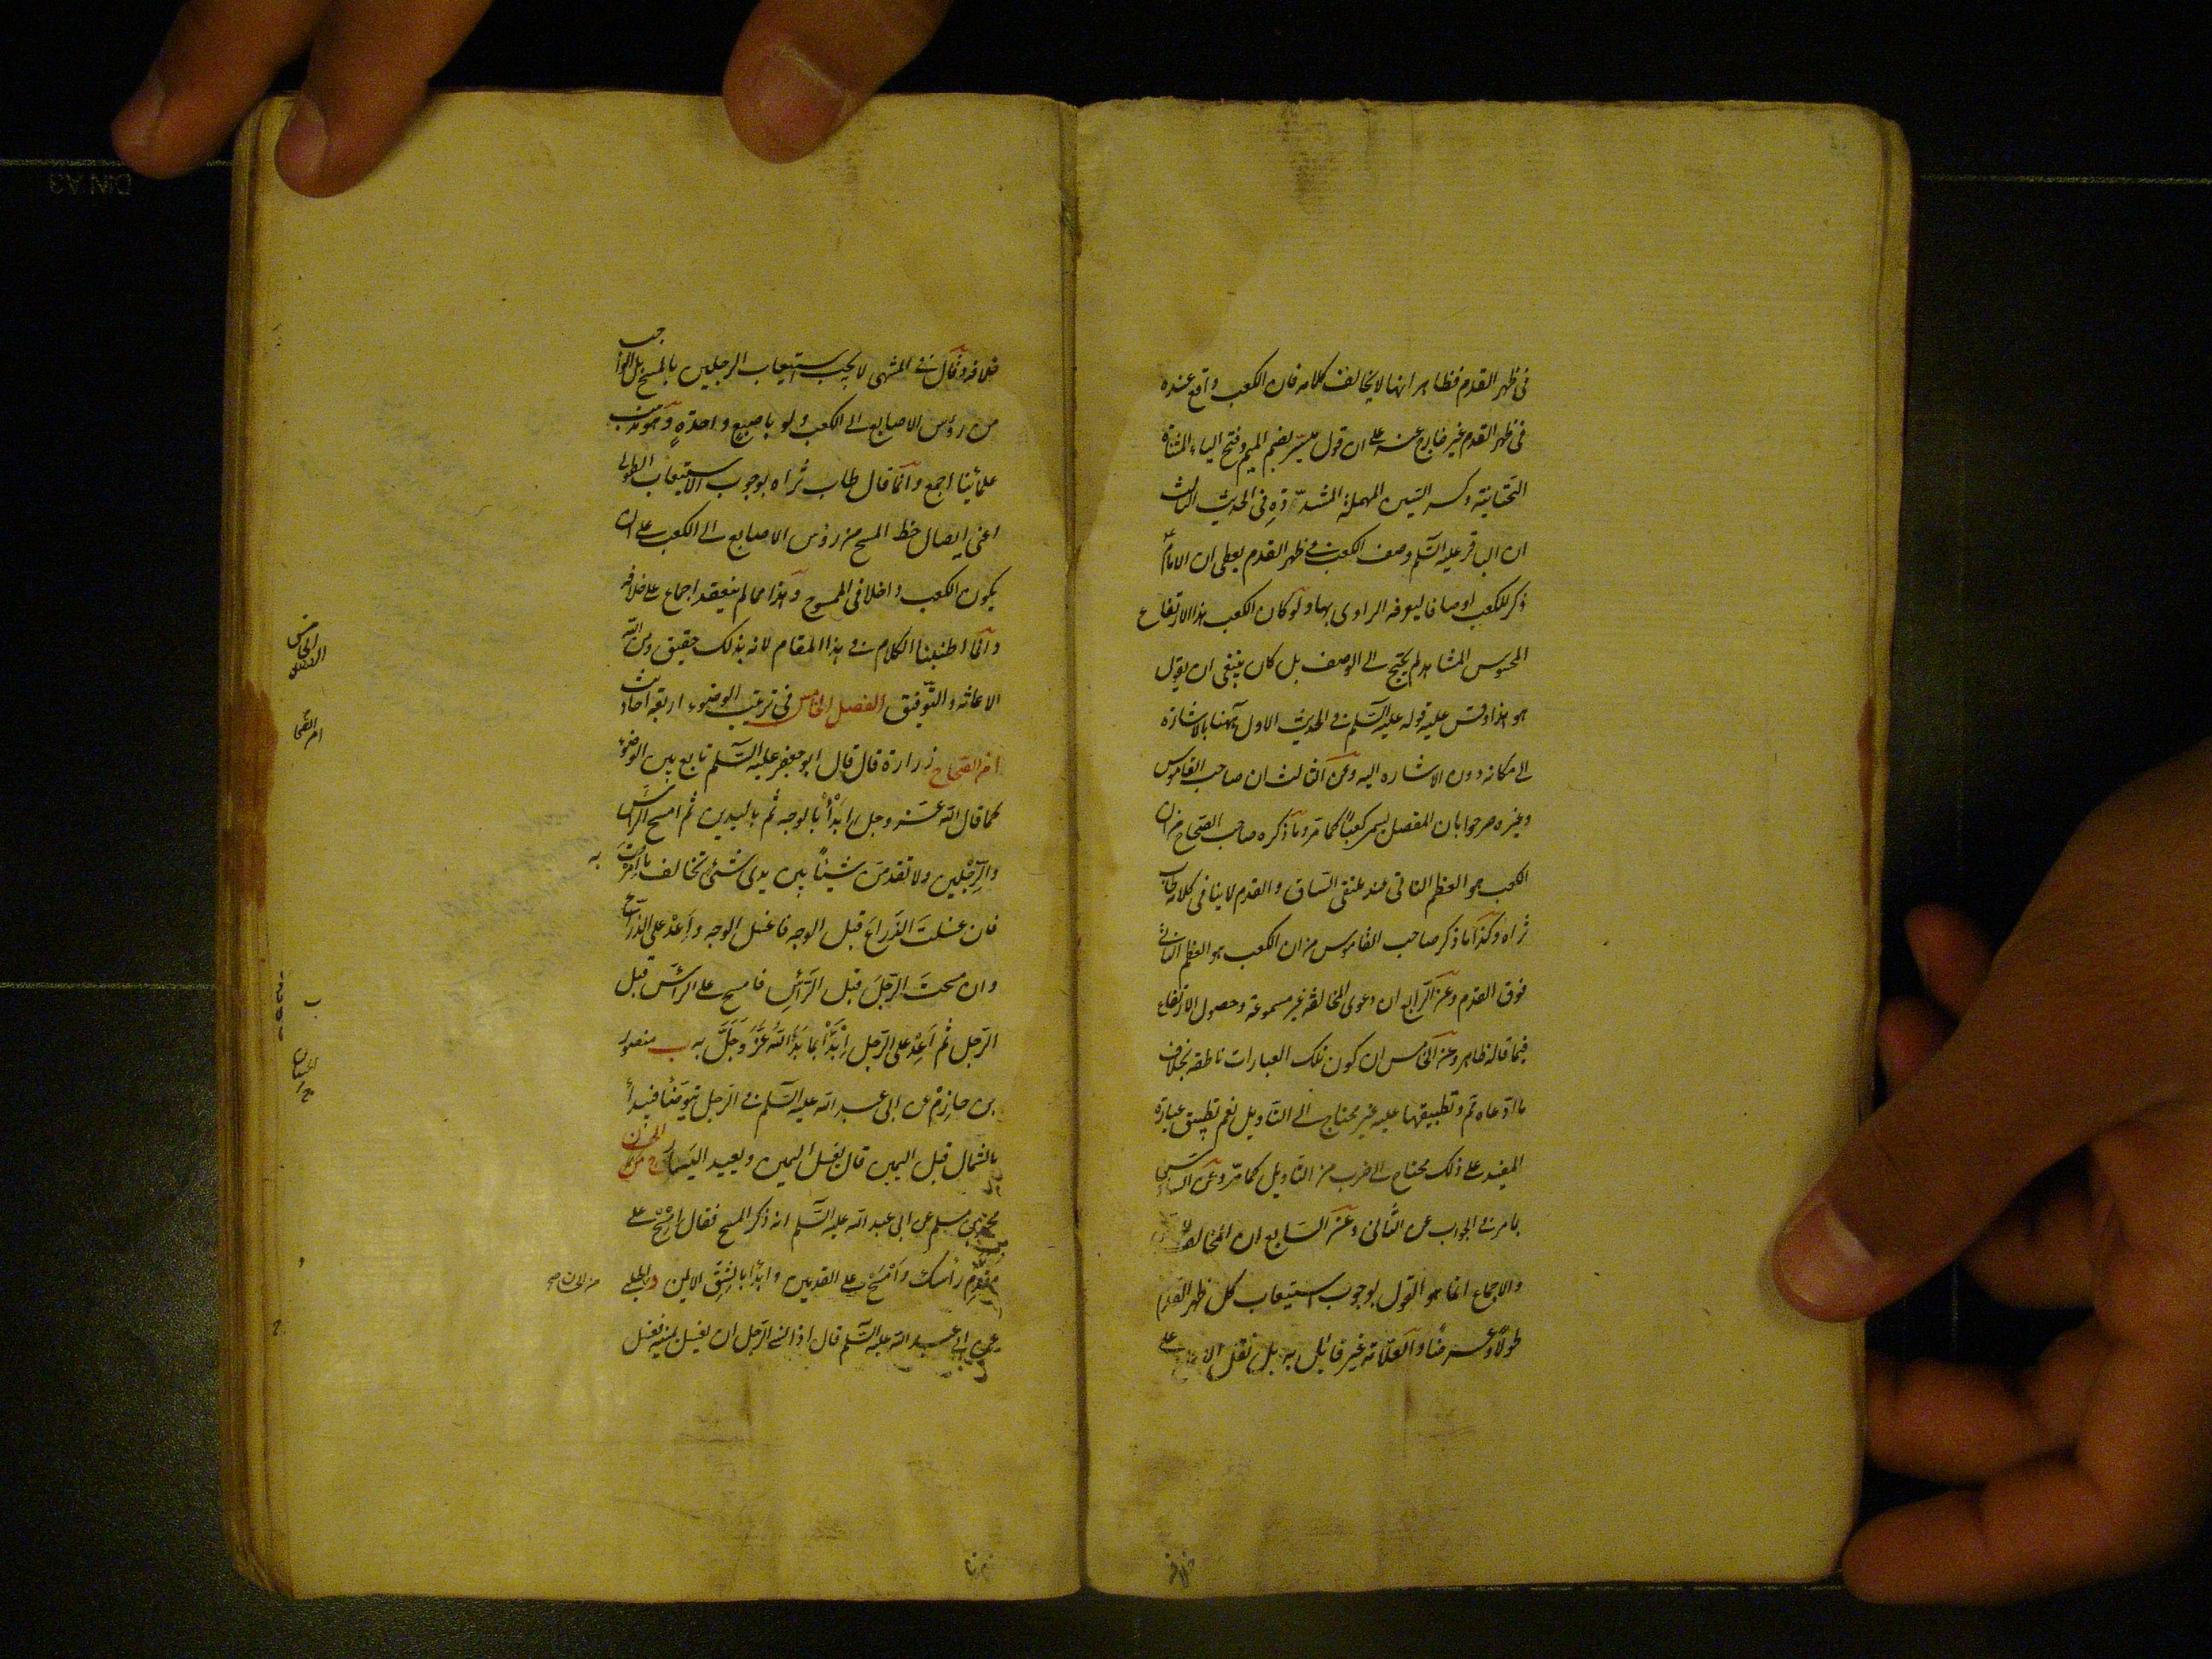 فى ظهر القدم فظاهر انها لا يخالف كلامه فان الكعب واقع عنده
فى ظهر القدم غير خارج عنه على ان قول ميسّر بضم الميم وفتح الياء المثناة
التحتانية وكسر السين المهملة المشدّدة فى الحديث الثالث
ان الباقر عليه السّلم وصف الكعب فى ظهر القدم يعطى ان الامام ع
ذكر للكعب اوصافا ليعرفه الراوى بها ولو كان الكعب هذا الارتفاع
المحسوس المشاهد لم يحتج الى الوصف بل كان ينبغى ان يقول
هو هذا وقس عليه قوله عليه السّلم فى الحديث الاول ههنا بالاشارة
الى مكانه دون الاشاره اليه وعن الثالث ان صاحب القاموس
وغيره صرحوا بان المفصل يسمى كعباً كما مر وما ذكره صاحب الصحاح من ان
الكعب هو العظم الناتى عند ملتقى السّاق والقدم لا ينافى كلامه طاب
ثراه وكذا ما ذكر صاحب القاموس من ان الكعب هو العظم الناشز
فوق القدم وعن الرّابع ان دعوى المخالفة غير مسموعة وحصول الارتفاع
فيما قاله ظاهر وعن الخامس ان كون تلك العبارات ناطقة بخلاف
ما ادّعاه تم وتطبيقها عليه غير محتاج الى التاويل نعم تطبيق عبارة
المفيد على ذلك محتاج الى ضرب من التاويل كما مرّ وعن السادس
ما مر فى الجواب عن الثّانى وعن السّابع ان المخالف
والاجماع انما هو القول بوجوب استيعاب كل ظهر القدم
طولاً وعرضًا والعلّامة غير قائل به بل نقل الاجماع على
خلافه وقال فى المنتهى لا يجب استيعاب الرجلين بالمسح بل الواجب
من رؤس الاصابع الى الكعب ولو باصبع واحدةٍ وهو مذهب
علمائنا اجمع وانما قال طاب ثراه بوجوب الاستيعاب الطولى
اعنى ايصال خط المسح من رؤس الاصابع الى الكعب على ان
يكون الكعب داخلا فى الممسوح وهذا مما لم ينعقد اجماع على خلافه
وانما اطنبنا الكلام فى هذا المقام لانه بذلك حقيق ومن الله
الاعانة والتّوفيق الفصل الخامس فى ترتيب الوضوء اربعة احاديث
ا من الصحاح زرارة قال قال ابو جعفر عليه السّلم تابع بين الوضوء
كما قال الله عزّ وجل ابْدَأْ بالوجه ثم باليدين ثم امسح الرأس
والرّجلين ولا تقدمنّ شيئاً بين يدى شئ تخالف ما امرت به
فان غسلت الذّراع قبل الوجه فاغسل الوجه وأعد على الذّراع
وان مسحت الرّجل قبل الرّأس فامسح على الرأس قبل
الرّجل ثم اعد على الرّجل اِبْدَأْ بما بَدَأَ اللهُ عَزَّ وَجَلَّ به ب منصور
بن حازم عن ابى عبد الله عليه السّلم فى الرّجل يتوضّأ فيبدأ
بالشمال قبل اليمين قال يغسل اليمين ويعيد اليسار ج من الحسان
محمد بن مسلم عن ابى عبد الله عليه السّلم انه ذكر المسح فقال امسح على
مقدّم رأسك وامسح على القدمين وابدأ بالشّق الايمن د الحلبى
عن ابى عبد الله عليه السّلم قال اذا نسى الرّجل ان يغسل يمينه فغسل
الفصل الخامس
ا من الصّحاح
ب
ج من الحسان
من الحسان